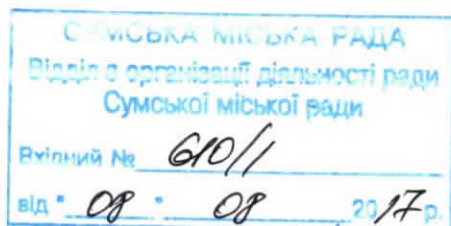 СУМСЬКА МІСЬКА РАДА
Відділ з організації діяльності ради
Сумської міської ради
Вхідний № 610/1
від " 08 " 08 2017 р.